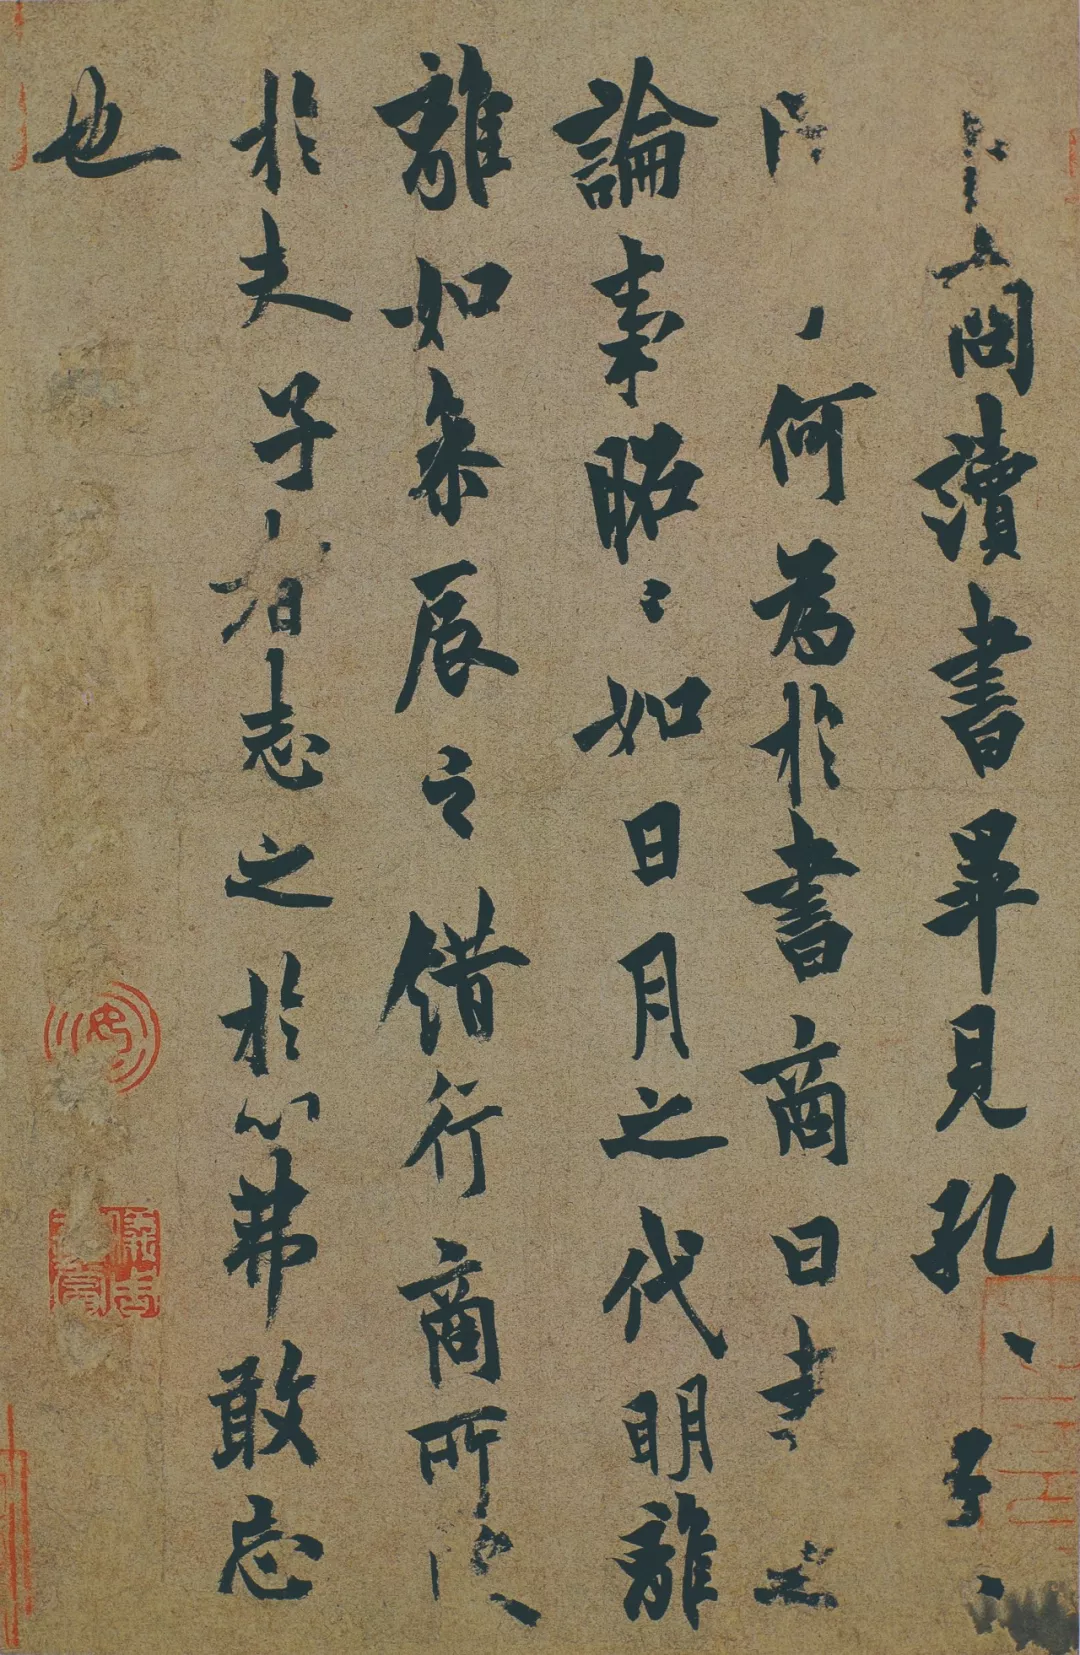 卜商讀書畢見孔〻子〻
問　何為於書商曰書之
論事昭〻如日月之代明離
離如參辰之錯行商所
於夫子者志之於心弗敢忘
也